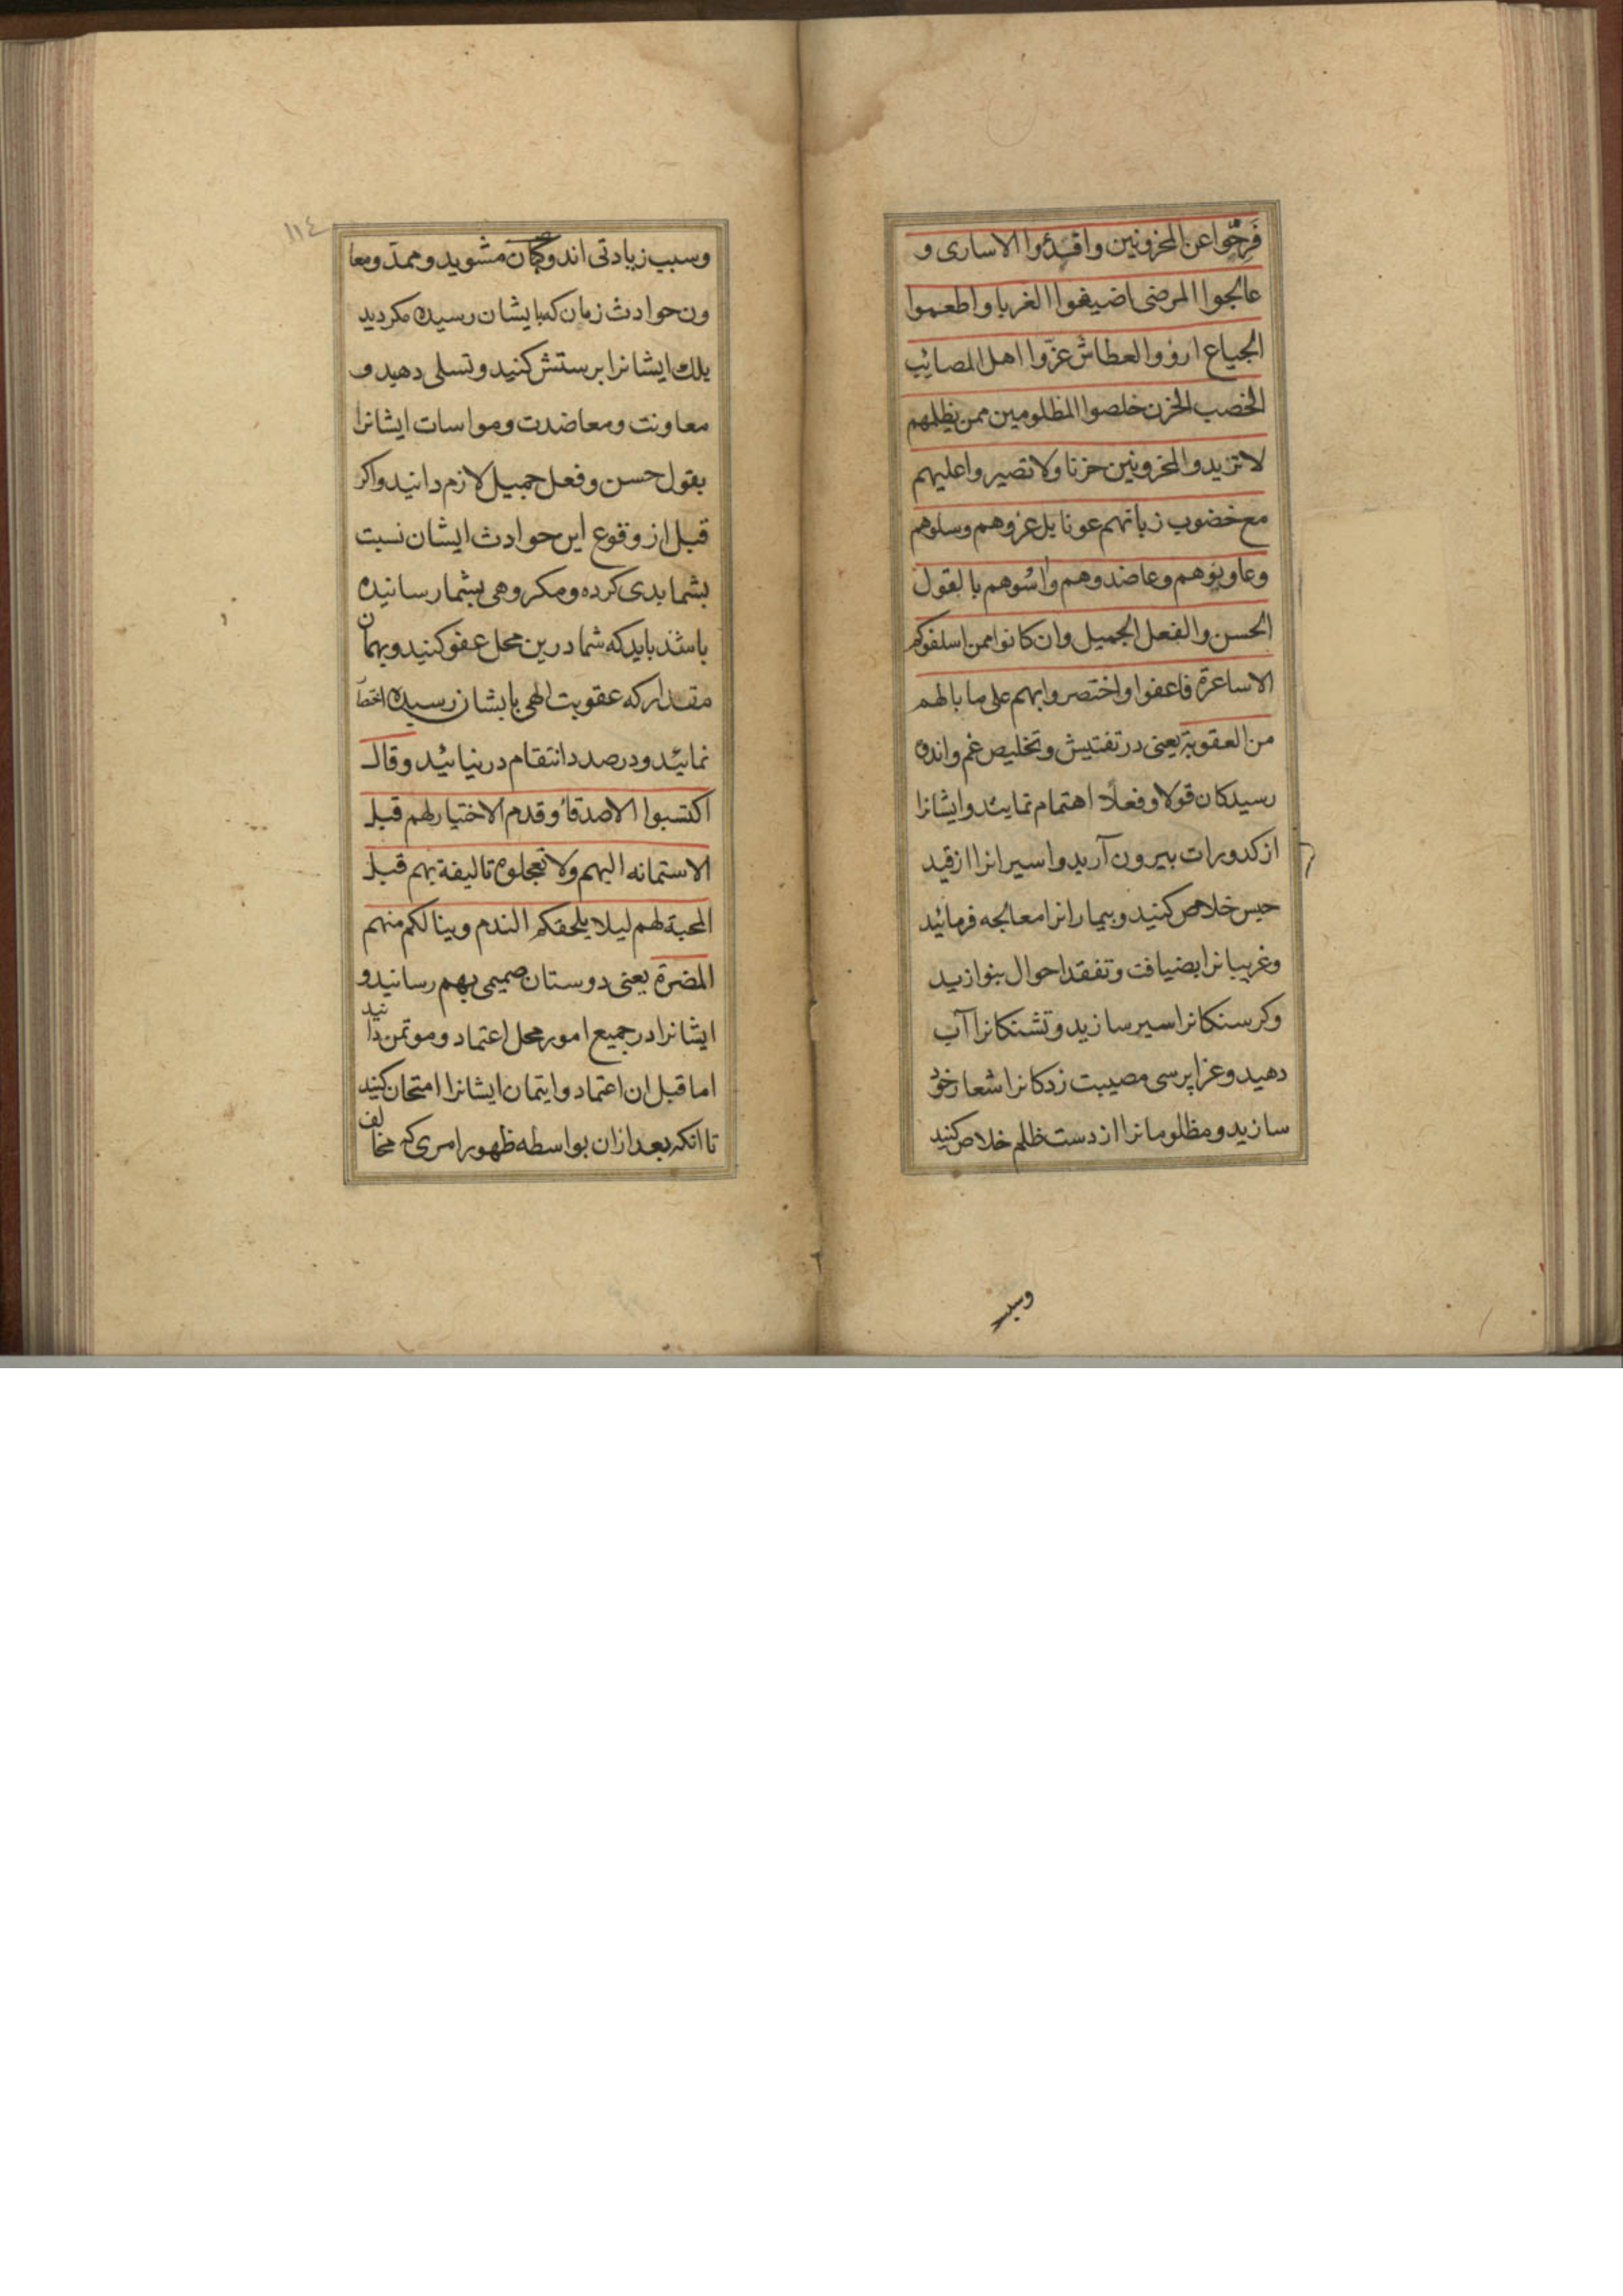 فَرِحّوا عن المحزونین وافدؤا الاساری و
عالجوا المرضی اضیفوا الغربا واطعموا
الجیاع ارؤوا العطاش عزّوا اهل المصائب
الخصب الحزن خلصوا المظلومین ممن یظلمهم
لا تزیدو المحزونین حزنا ولا تصیروا علیهم
مع خضوب زبانهم عونا بل عزوهم وسلوهم
وعاونوهم وعاضدوهم واسُوهم بالقول
الحسن والفعل الجمیل وان کانوا ممن اسلفوکم
الاساءة فاعفوا واختصروا بهم علی ما بالهم
من العقوبة یعنی در تفتیش وتخلیص غم واندوه
رسیدکان قولا وفعلاً اهتمام نمایند وایشانرا
از کدورات بیرون آرید واسیرانرا از قید
حبس خلاص کنید وبیمارانرا معالجه فرمائید
وغریبانرا بضیافت وتفقد احوال بنوازید
وکرسنکانرا سیر سازید وتشنکانرا آب
دهید وعزاپرسی مصیبت زدکانرا شعار خود
سازید ومظلومانرا از دست ظلم خلاص کنید
وسبب
١١٤
وسبب زیادتی اندوه کان مشوید وممدّ ومعا
ون حوادث زمان که بایشان رسیده مکردید
بلکه ایشانرا برستش کنید وتسلی دهید و
معاونت ومعاضدت ومواسات ایشانرا
بقول حسن وفعل جمیل لازم دانید واکر
قبل از وقوع این حوادث ایشان نسبت
بشما بدی کرده ومکروهی بشما رسانیده
باشند باید که شما درین محل عفو کنید وبهمان
مقدار که عقوبت الهی بایشان رسیده اختصا
نمائید ودر صدد انتقام در نیائید وقال
اکتسبوا الاصدقاُ وقدم الاختیار لهم قبل
الاستمانه الیهم ولا تعجلوه تالیفة بهم قبل
المحبة لهم لیلا یلحقکم الندم وینالکم منهم
المضرة یعنی دوستان صمیمی بهم رسانید و
ایشانرا در جمیع امور محل اعتماد وموتمن دانید
اما قبل ان اعتماد وایتمان ایشانرا امتحان کنید
تا انکه بعد ازان بواسطه ظهور امری که مخالف